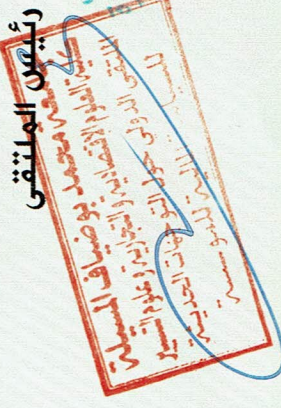 رئيس الملتقى
جامعة محمد بوضياف المسيلة
كلية العلوم الاقتصادية والتجارية وعلوم التسيير
الملتقى الدولي حول التوجهات الحديثة
المالية للمؤسسة